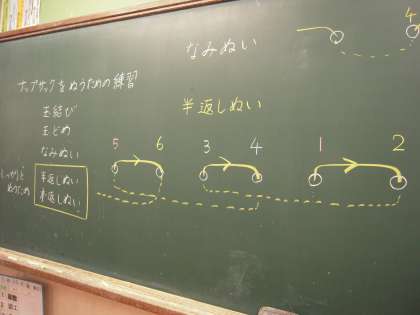 なみぬい
4
ナップサックをぬうための練習
玉結び
玉どめ
なみぬい
しっかりと
ぬうため
半返しぬい
本返しぬい
半返しぬい
5 6 3 4 1 2